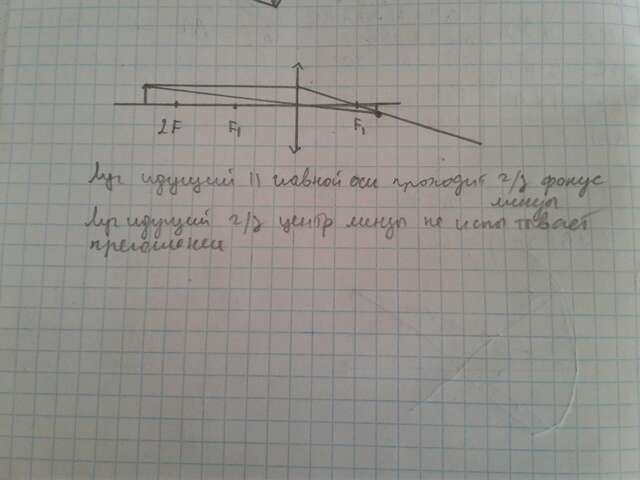 2F F₁ F₁
Луч идущий || главной оси проходит ч/з фокус
линзы
Луч идущий ч/з центр линзы не испытывает
преломления